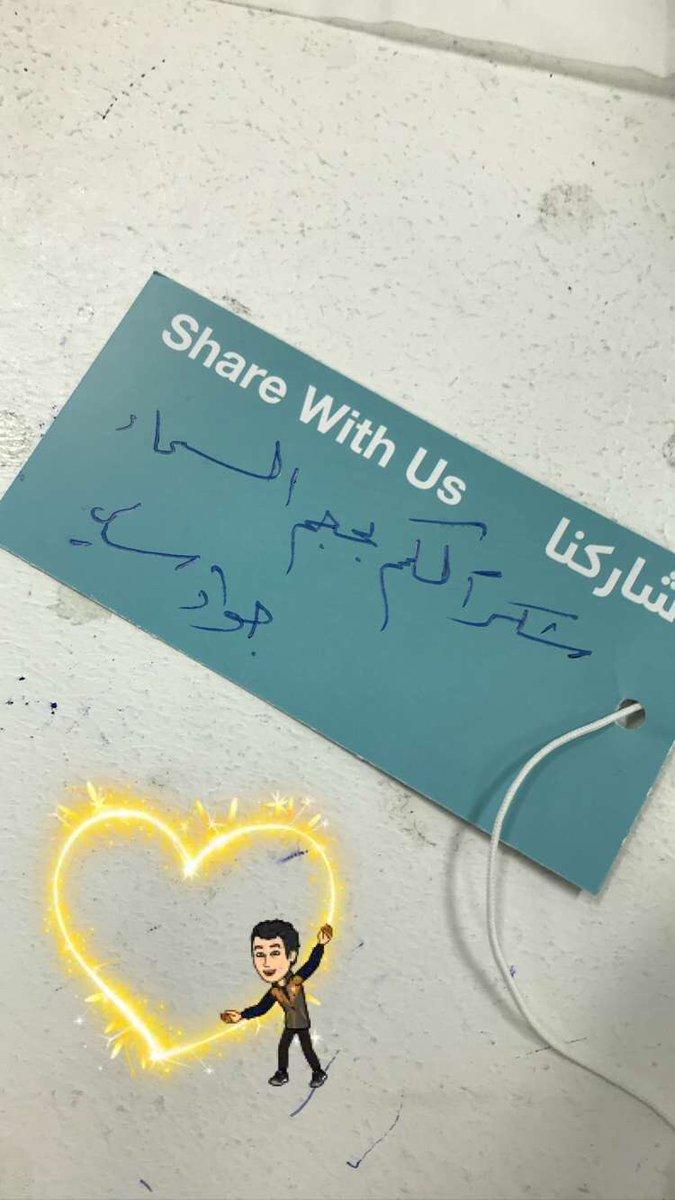 Share With Us
شاركنا
شكراً لكم بحجم السماء
جواد